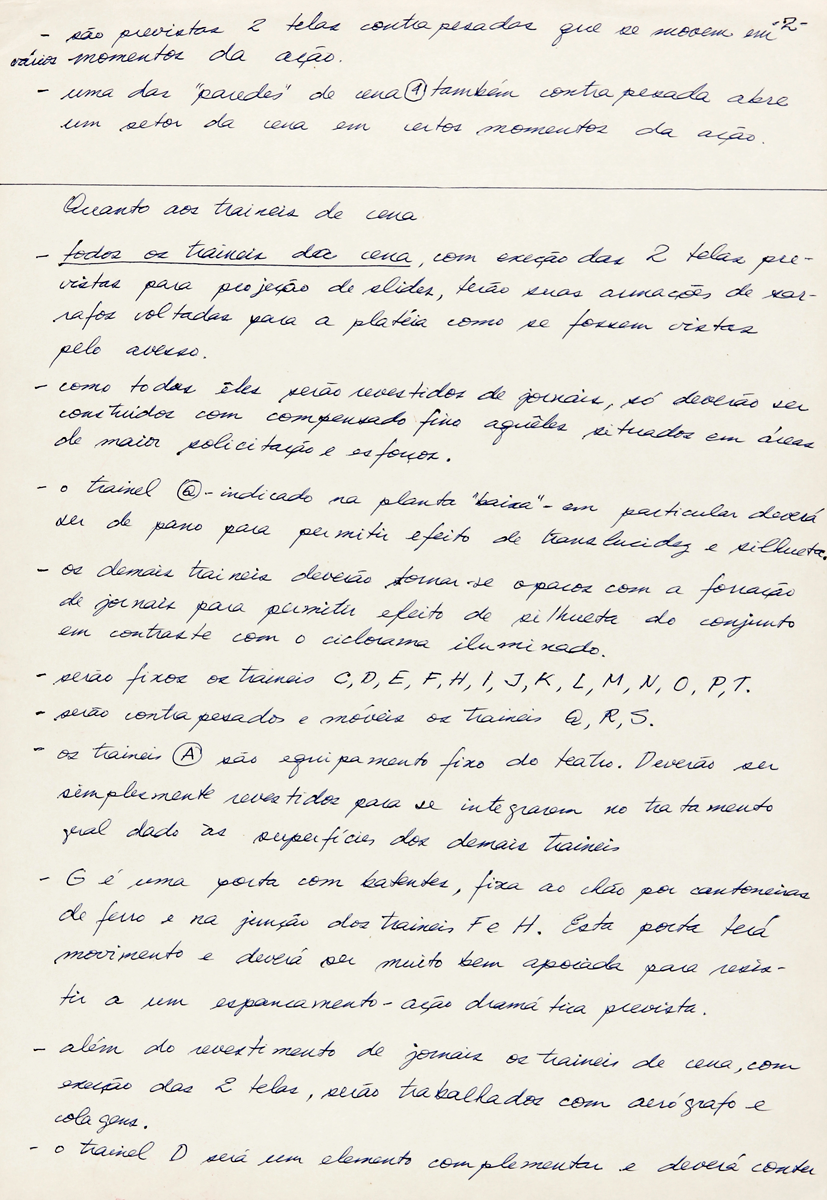 -2-
- são previstas 2 telas contrapesadas que se movem em
vários momentos da ação.
- uma das "paredes" de cena (1) também contrapesada abre
um setor da cena em certos momentos da ação.
Quanto aos traineis de cena
- todos os traineis da cena, com exeção das 2 telas pre-
vistas para projeção de slides, terão suas armações de sar-
rafos voltadas para a platéia como se fossem vistas
pelo avesso.
- como todos êles serão revestidos de jornais, só deverão ser
construidos com compensado fino aquêles situados em áreas
de maior solicitação e esforços.
- o trainel Q - indicado na planta "baixa" - em particular deverá
ser de pano para permitir efeito de translucidez e silhueta.
- os demais traineis deverão tornar-se opacos com a forração
de jornais para permitir efeito de silhueta do conjunto
em contraste com o ciclorama iluminado.
- serão fixos os traineis C, D, E, F, H, I, J, K, L, M, N, O, P, T.
- serão contrapesados e móveis os traineis Q, R, S.
- os traineis (A) são equipamento fixo do teatro. Deverão ser
simplesmente revestidos para se integrarem no tratamento
geral dado às superfícies dos demais traineis
- G é uma porta com batentes, fixa ao chão por cantoneiras
de ferro e na junção dos traineis F e H. Esta porta terá
movimento e deverá ser muito bem apoiada para resis-
tir a um espancamento - ação dramática prevista.
- além do revestimento de jornais os traineis de cena, com
exeção das 2 telas, serão trabalhados com aerógrafo e
colagens.
- o trainel D será um elemento complementar e deverá conter